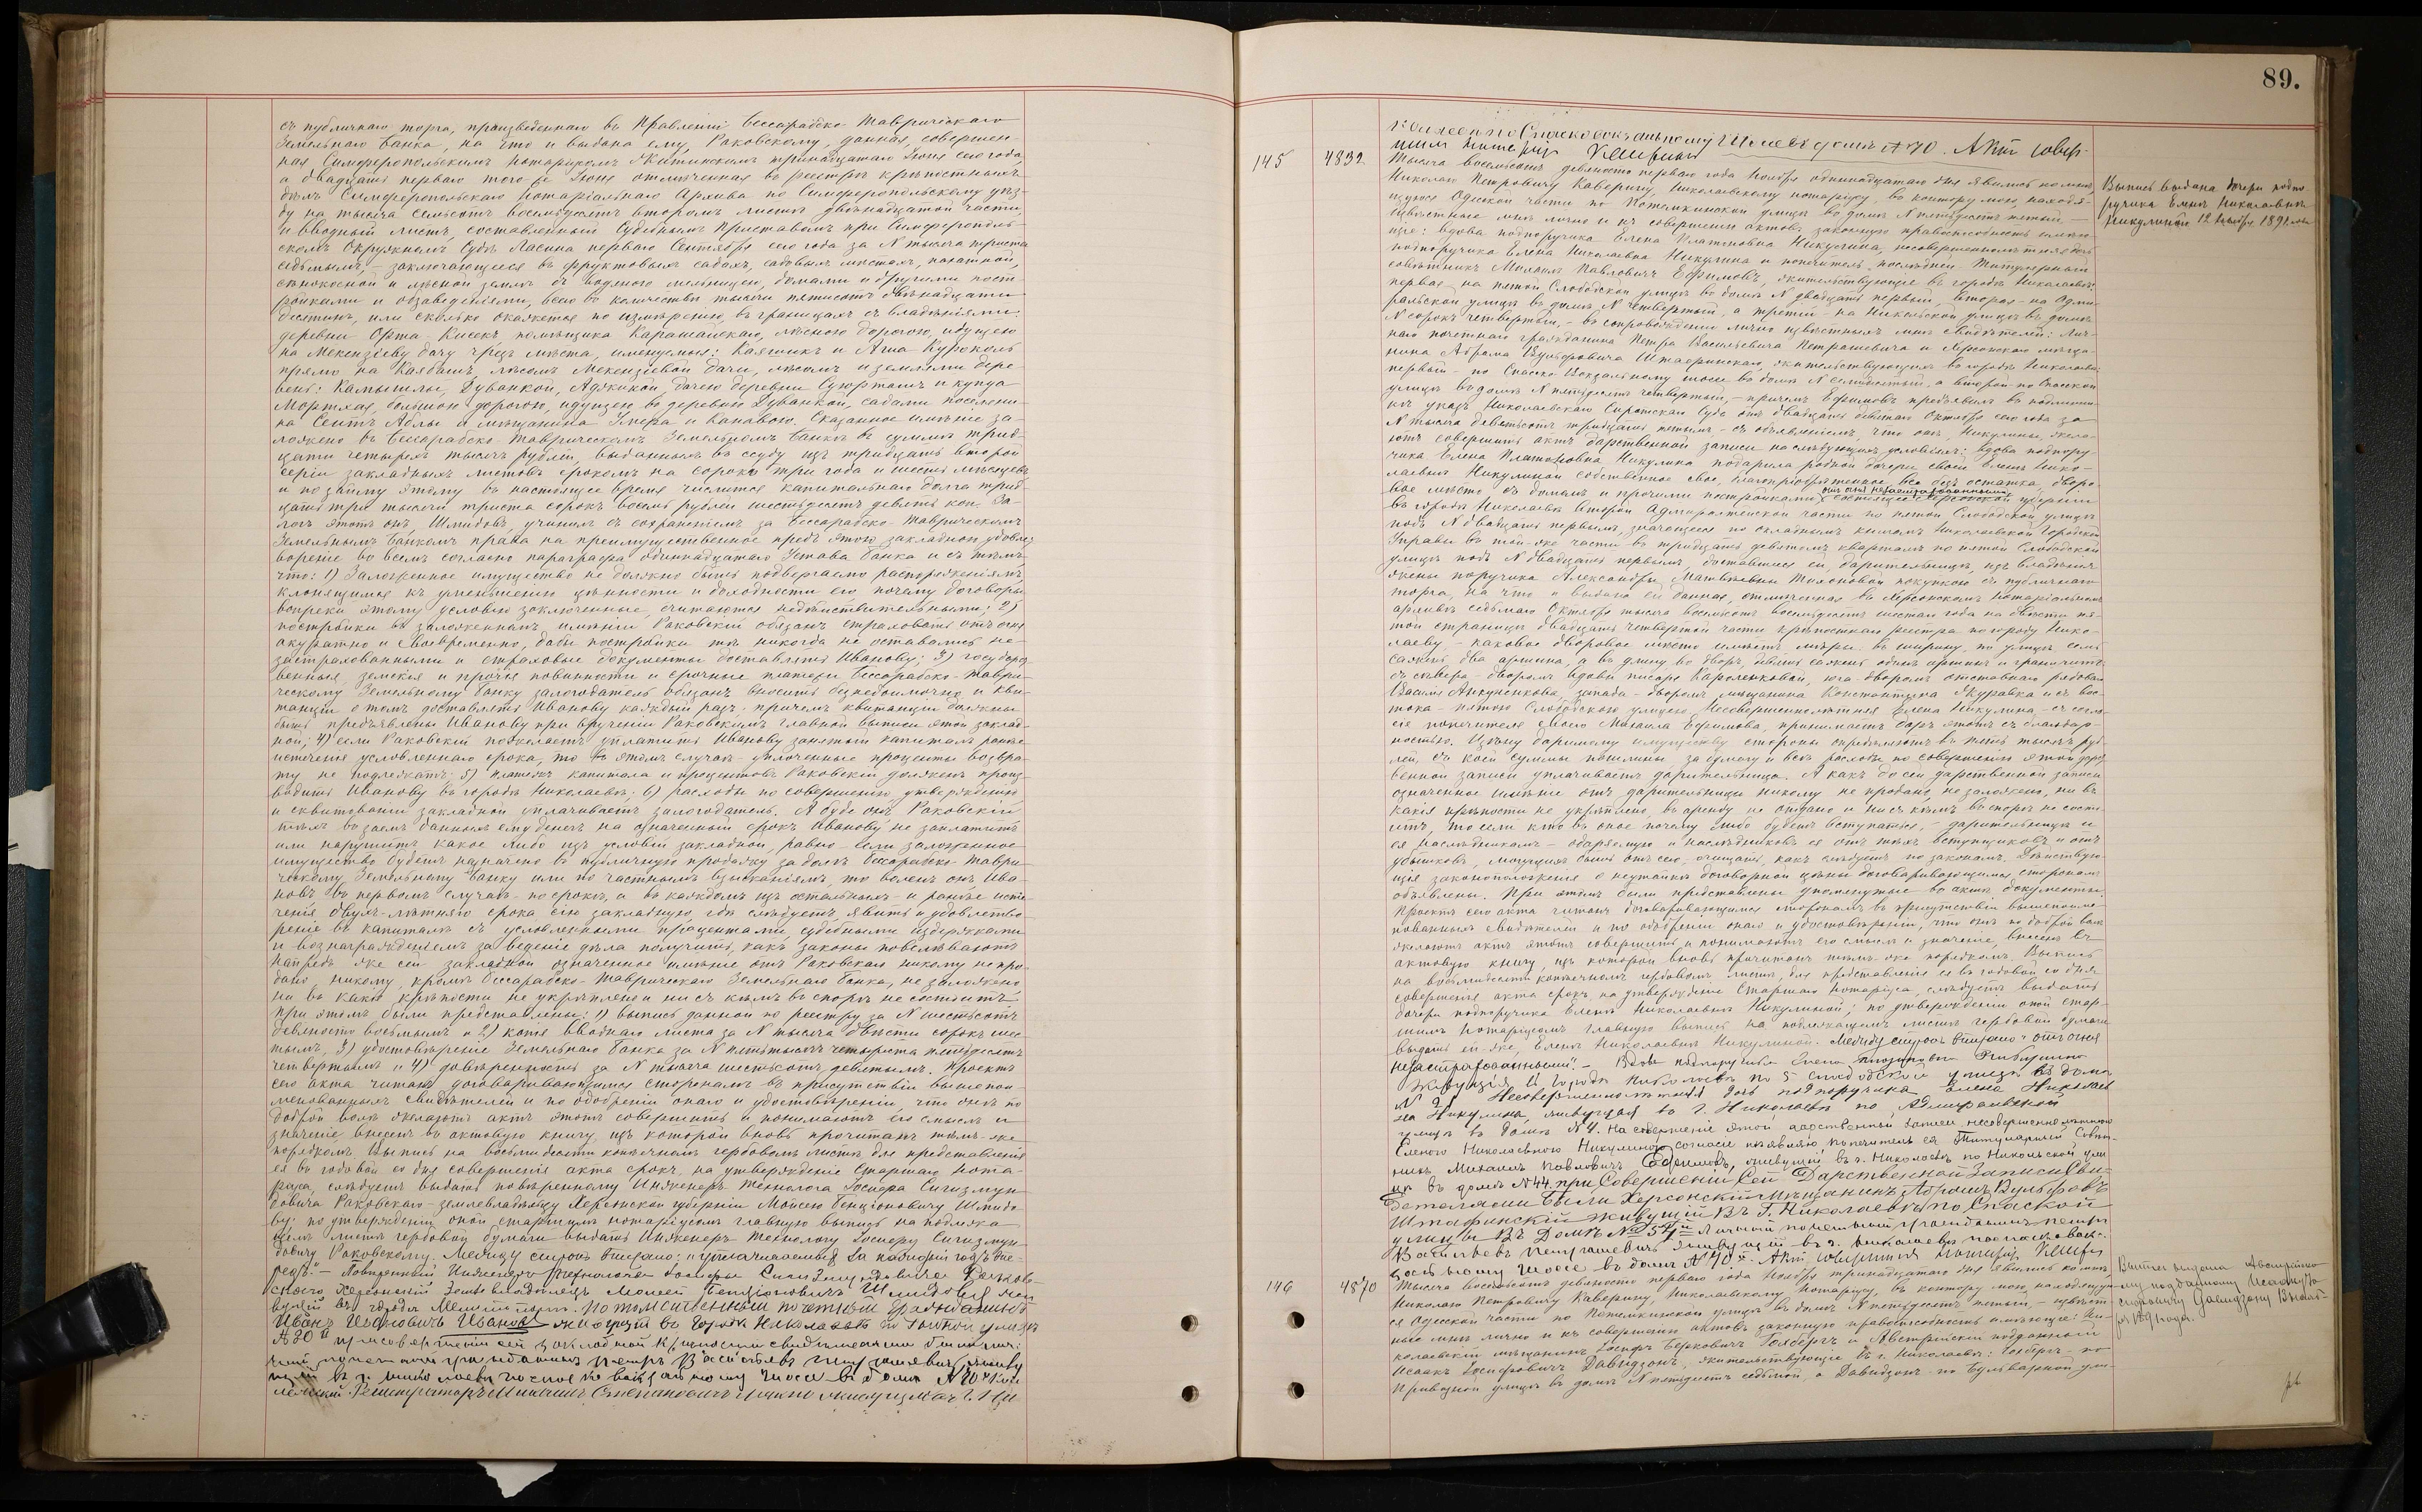 съ публичнаго торга, произведеннаго въ Правленіи Бессарабско-Таврическаго
Земельнаго Банка, на что и выдана ему, Раковскому, данная, совершен-
ная Симферопольскимъ нотаріусомъ тринадцатаго Іюня сего года,
а двадцать перваго того-же Іюня отмѣченная въ реестрѣ крѣпостныхъ
дѣлъ Симферопольскаго Нотаріальнаго Архива по Симферопольскому уѣз-
ду на тысяча семьсотъ восемьдесятъ второмъ листѣ двѣнадцатой части,
и вводный листъ, составленный Судебнымъ Приставомъ при Симферополь-
скомъ Окружномъ Судѣ перваго Сентября сего года за N тысяча триста
седьмымъ, – заключающееся въ фруктовыхъ садахъ, садовыхъ мѣстахъ, пахатной,
сѣнокосной и лѣсной землѣ съ водяною мельницею, домами и другими пост-
ройками и обзаведеніями, всего въ количествѣ тысячи пятисотъ двѣнадцати
десятинъ, или сколько окажется по измѣренію, въ границахъ съ владѣніями:
деревни Орта Кисекъ помѣщика лѣсною дорогою, идущею
на Мекензіеву дачу чрезъ мѣста, именуемыя:
прямо на лѣсомъ Мекензіевой дачи, лѣсомъ и землями дере-
вень: Камышлы, Дуванкой, Аджикой, дачею деревни и купца
большою дорогою, идущею въ деревню Дуванкой, садами поселяни-
на и мѣщанина Сказанное имѣніе за-
ложено въ Бессарабско-Таврическомъ Земельномъ Банкѣ въ суммѣ трид-
цати четырехъ тысячъ рублей, выданныхъ въ ссуду изъ тридцать второй
серіи закладныхъ листовъ срокомъ на сорокъ три года и шесть мѣсяцевъ
и по займу этому въ настоящее время числится капитальнаго долга трид-
цать три тысячи триста сорокъ восемь рублей шестьдесятъ девять коп. За-
логъ этотъ онъ, Шмидовъ, учинилъ съ сохраненіемъ за Бессарабско-Таврическимъ
Земельнымъ Банкомъ права на преимущественное предъ этою закладной удовлет-
вореніе во всемъ согласно параграфа одиннадцатаго Устава Банка и съ тѣмъ
что: 1) Заложенное имущество не должно быть подвергаемо распоряженіямъ,
клонящимся къ уменьшенію цѣнности и доходности его, почему договоры
вопреки этому условію заключенные, считаются недѣйствительными; 2)
постройки въ заложенномъ имѣніи Раковскій обязанъ страховать отъ огня
акуратно и своевременно, дабы постройки тѣ никогда не оставались не-
застрахованными и страховые документы доставлять Иванову; 3) государст-
венныя, земскія и прочія повинности и срочные платежи Бессарабско-Таври-
ческому Земельному Банку залогодатель обязанъ вносить бездоимочно и кви-
танціи о томъ доставлять Иванову каждый разъ, причемъ квитанціи должны
быть предъявлены Иванову при врученіи Раковскимъ главной выписи этой заклад-
ной; 4) если Раковскій пожелаетъ уплатить Иванову занятый капиталъ ранѣе
истеченія условленнаго срока, то въ этомъ случаѣ уплоченные проценты возвра-
ту не подлежатъ; 5) платежъ капитала и процентовъ Раковскій долженъ произ-
водить Иванову въ городѣ Николаевѣ; 6) расходы по совершенію, утвержденію
и сквитованію закладной уплачиваетъ залогодатель. А буде онъ, Раковскій
тѣхъ въ заемъ данныхъ ему денегъ на означенный срокъ Иванову не заплатитъ
или нарушитъ какое либо изъ условій закладной, равно – если заложенное
имущество будетъ назначено въ публичную продажу за долгъ Бессарабско-Таври-
ческому Земельному Банку или по частнымъ взысканіямъ, то воленъ онъ, Ива-
новъ въ первомъ случаѣ – по срокѣ, а въ каждомъ изъ остальныхъ – и ранѣе исте-
ченія двухъ-лѣтняго срока сію закладную, гдѣ слѣдуетъ, явить и удовлетво-
реніе въ капиталѣ съ условленными процентами, судебными издержками
и вознагражденіемъ за веденіе дѣла получить, какъ законы повелѣваютъ
Напредь же сей закладной означенное имѣніе отъ Раковскаго никому не про-
дано, никому, кромѣ Бессарабско-Таврическаго Земельнаго Банка, не заложено,
ни въ какія крѣпости не укрѣплено и ни съ кѣмъ въ спорѣ не состоитъ.
При этомъ были представлены: 1) выпись данной по реестру за N шестьсотъ
девяносто восьмымъ и 2) копія вводнаго листа за N тысяча двѣсти сорокъ шес-
тымъ, 3) удостовѣреніе Земельнаго Банка за N пять тысячъ четыреста пятьдесятъ
четвертымъ и 4) довѣренность за N тысяча шестьсотъ девятымъ. Проектъ
сего акта читанъ договаривающимся сторонамъ въ присутствіи вышепои-
менованныхъ свидѣтелей и по одобреніи онаго и удостовѣреніи, что онѣ по
доброй волѣ желаютъ актъ этотъ совершить и понимаютъ его смыслъ и
значеніе внесенъ въ актовую книгу, изъ которой вновь прочитанъ тѣмъ-же
порядкомъ. Выпись на восьмидесяти копѣечномъ гербовомъ листѣ, для представленія
ея въ годовой со дня совершенія акта срокъ, на утвержденіе Старшаго Нота-
ріуса, слѣдуетъ выдать повѣренному Инженеръ Технолога Іосифа Сигизмун-
довича Раковскаго – землевладѣльцу Херсонской губерніи Мойсею Бенціоновичу Шмидо-
ву; по утвержденіи оной старшимъ нотаріусомъ главную выпись на подлежа-
щемъ листѣ гербовой бумаги выдать Инженеръ Технологу Іосифу Сигизмун-
довичу Раковскому. Между строкъ вписано: „уплачиваемыя за полгода впе-
редъ.“ – Повѣренный Инженера Технолога Іосифа Сигизмундовича Раковс-
скаго Херсонскій Землевладѣлецъ Моисей Бенціоновичъ Шмидовъ жи-
вущій въ городѣ Потомственный почетный гражданинъ
Иванъ Ивановичъ Ивановъ живущій въ городѣ Николаевѣ по улицѣ
N 20 й при совершеніи сей закладной крѣпости свидѣтелями были лич-
ный почетный гражданинъ Петръ Васильевъ Петрашевичъ, живу-
щій въ г. Николаевѣ по Спаско вокзальному шоссе въ домѣ N 70 и Кол-
лежскій Регистраторъ Михаилъ Степановичъ живущій въ г. Ни-
89.
колаевѣ по Спасковокзальному Шоссе въ домѣ N 70. Актъ совер-
шилъ нотаріусъ Каверинъ
145
4832
Тысяча восемьсотъ девяносто перваго года Ноября одиннадцатаго дня явились ко мнѣ,
Николаю Петровичу Каверину, Николаевскому нотаріусу, въ контору мою, находя-
щуюся Одесской части по Потемкинской улицѣ въ домѣ N пятьдесятъ пятый –
извѣстные мнѣ лично и къ совершенію актовъ законную правоспособность имѣю-
щіе: вдова подпоручика Елена Платоновна Никулина, несовершеннолѣтняя дочь
подпоручика Елена Николаевна Никулина и попечитель послѣдней Титулярный
совѣтникъ Михаилъ Павловичъ Ефимовъ, жительствующіе въ городѣ Николаевѣ:
первая – на пятой Слободской улицѣ въ домѣ N двадцать первый, вторая – на Адми-
ральской улицѣ въ домѣ N четвертый, а третій – на Никольской улицѣ въ домѣ
N сорокъ четвертый, – въ сопровожденіи лично извѣстныхъ мнѣ свидѣтелей: лич-
наго почетнаго гражданина Петра Васильевича Петрашевича и Херсонскаго мѣща-
нина Абрама Вульфовича Штаеринскаго, жительствующихъ въ городѣ Николаевѣ:
первый – по Спаско-Вокзальному шоссе въ домѣ N семидесятый, а второй – по Спасской
улицѣ въ домѣ N пятьдесятъ четвертый, – причемъ Ефимовъ предъявилъ въ подлинни-
кѣ указъ Николаевскаго Сиротскаго Суда отъ двадцать девятаго Октября сего года за
N тысяча девятьсотъ тридцать пятымъ – съ объявленіемъ, что онѣ, Никулины, жела-
ютъ совершить актъ дарственной записи на слѣдующихъ условіяхъ: вдова подпору-
чика Елена Платоновна Никулина подарила родной дочери своей Еленѣ Нико-
лаевнѣ Никулиной собственное свое, благопріобрѣтенное все безъ остатка, дворо-
вое мѣсто съ домомъ и прочими постройками, отъ огня незастрахованными, состоящее Херсонской губерніи
въ городѣ Николаевѣ второй Адмиралтейской части по пятой Слободской улицѣ
подъ N двадцать первымъ, значащееся по окладнымъ книгамъ Николаевской Городской
Управы въ той-же части въ тридцать девятомъ кварталѣ по пятой Слободской
улицѣ подъ N двадцать первымъ, доставшееся ей, дарительницѣ, изъ владѣнія
жены поручика Александры Матвѣевны Тихоновой покупкою съ публичнаго
торга, на что и выдана ей данная, отмѣченная въ Херсонскомъ Нотаріальномъ
архивѣ седьмаго Октября тысяча восемьсотъ восемьдесятъ шестаго года на двѣсти пя-
той страницѣ двадцать четвертой части крѣпостнаго реестра по городу Нико-
лаеву – каковое дворовое мѣсто имѣетъ мѣры: въ ширину, по улицѣ семь
саженъ два аршина, а въ длину во дворъ, девять саженъ одинъ аршинъ и граничитъ:
съ сѣвера – дворомъ вдовы писаря Кароленковой, юга – дворомъ отставнаго рядоваго
Василія Анкуденкова, запада – дворомъ мѣщанина Константина Журавка и съ вос-
тока – пятою Слободскою улицею. Несовершеннолѣтняя Елена Никулина – съ согла-
сія попечителя своего Михаила Ефимова, принимаетъ даръ этотъ съ благодар-
ностью. Цѣну даримому имуществу стороны опредѣляютъ въ пять тысячъ руб-
лей, съ коей суммы пошлины, за бумагу и всѣ расходы по совершенію этой дарст-
венной записи уплачиваетъ дарительница. А какъ до сей дарственной записи
означенное имѣніе отъ дарительницы никому не продано, не заложено, ни въ
какія крѣпости не укрѣплено, въ аренду не отдано и ни съ кѣмъ въ спорѣ не состо-
итъ, то если кто въ оное почему либо будетъ вступаться, – дарительницѣ и
ея наслѣдникамъ – одаряемую и наслѣдниковъ ея отъ тѣхъ вступщиковъ и отъ
убытковъ, могущихъ быть отъ сего, очищать, какъ слѣдуетъ по законамъ. Дѣйствую-
щія законоположенія о неутайкѣ договорной цѣны договаривающимся сторонамъ
объявлены. При этомъ были представлены упомянутые въ актѣ документы.
Проектъ сего акта читанъ договаривающимся сторонамъ въ присутствіи вышепоиме-
нованныхъ свидѣтелей и по одобреніи онаго и удостовѣреніи, что онѣ по доброй волѣ
желаютъ актъ этотъ совершить и понимаютъ его смыслъ и значеніе, внесенъ въ
актовую книгу, изъ которой вновь прочитанъ тѣмъ-же порядкомъ. Выпись
на восьмидесяти копѣечномъ гербовомъ листѣ, для представленія ея въ годовой со дня
совершенія акта срокъ, на утвержденіе Старшаго Нотаріуса, слѣдуетъ выдать
дочери подпоручика Еленѣ Николаевнѣ Никулиной; по утвержденіи оной стар-
шимъ Нотаріусомъ главную выпись на подлежащемъ листѣ гербовой бумаги
выдать ей-же, Еленѣ Николаевнѣ Никулиной. Между строкъ вписано „отъ огня
незастрахованными“. – Вдова подпоручика Елена Платоновна Никулина
живущая въ городѣ Николаевѣ по 5 слободской улицѣ въ домѣ
N 21. Несовершеннолѣтняя дочь подпоручика Елена Николаев-
на Никулина, живущая въ г. Николаевѣ по Адмиральской
улицѣ въ домѣ N 4. На совершеніе этой дарственной записи несовершеннолѣтнею
Еленою Николаевною Никулиною согласіе изъявляю попечитель ея Титулярный Совѣт-
никъ Михаилъ Павловичъ Ефимовъ, живущій въ г. Николаевѣ по Никольской ули-
цѣ въ домѣ N 44. При Совершеніи Сей Дарственной Записи Сви-
детелями Были Херсонскій мѣщанинъ Абрамъ Вульфовъ
Штафинскій живущій Въ Г. Николаевѣ по Спаской
улицы Въ Домѣ No 54й Личный почетный гражданинъ Петръ
Васильевъ Петрашевичъ живущій въ г. Николаевѣ по Спасковок-
зальному шоссе въ домѣ N 70 й. Актъ совершилъ нотаріусъ Каверинъ
Выпись выдана дочери подпо-
ручика Еленѣ Николаевнѣ
Никулиной 12 Ноября 1891 года
146
4870
Тысяча восемьсотъ девяносто перваго года Ноября тринадцатаго дня явились ко мнѣ,
Николаю Петровичу Каверину, Николаевскому Нотаріусу, въ контору мою, находящую-
ся Одесской части по Потемкинской улицѣ въ домѣ N пятьдесятъ пятый – извѣст-
ные мнѣ лично и къ совершенію актовъ законную правоспособность имѣющіе: Ни-
колаевскій мѣщанинъ Іосифъ Берковичъ Голбергъ и Австрійскій подданный
Исаакъ Іосифовичъ Давидзонъ, жительствующіе въ г. Николаевѣ: Голбергъ – по
Привозной улицѣ въ домѣ N пятьдесятъ седьмой, а Давидзонъ – по Бульварной ули-
Выпись выдана Австрійско-
му подданному Исааку Іо-
сифовичу Давидзону
1891 года.